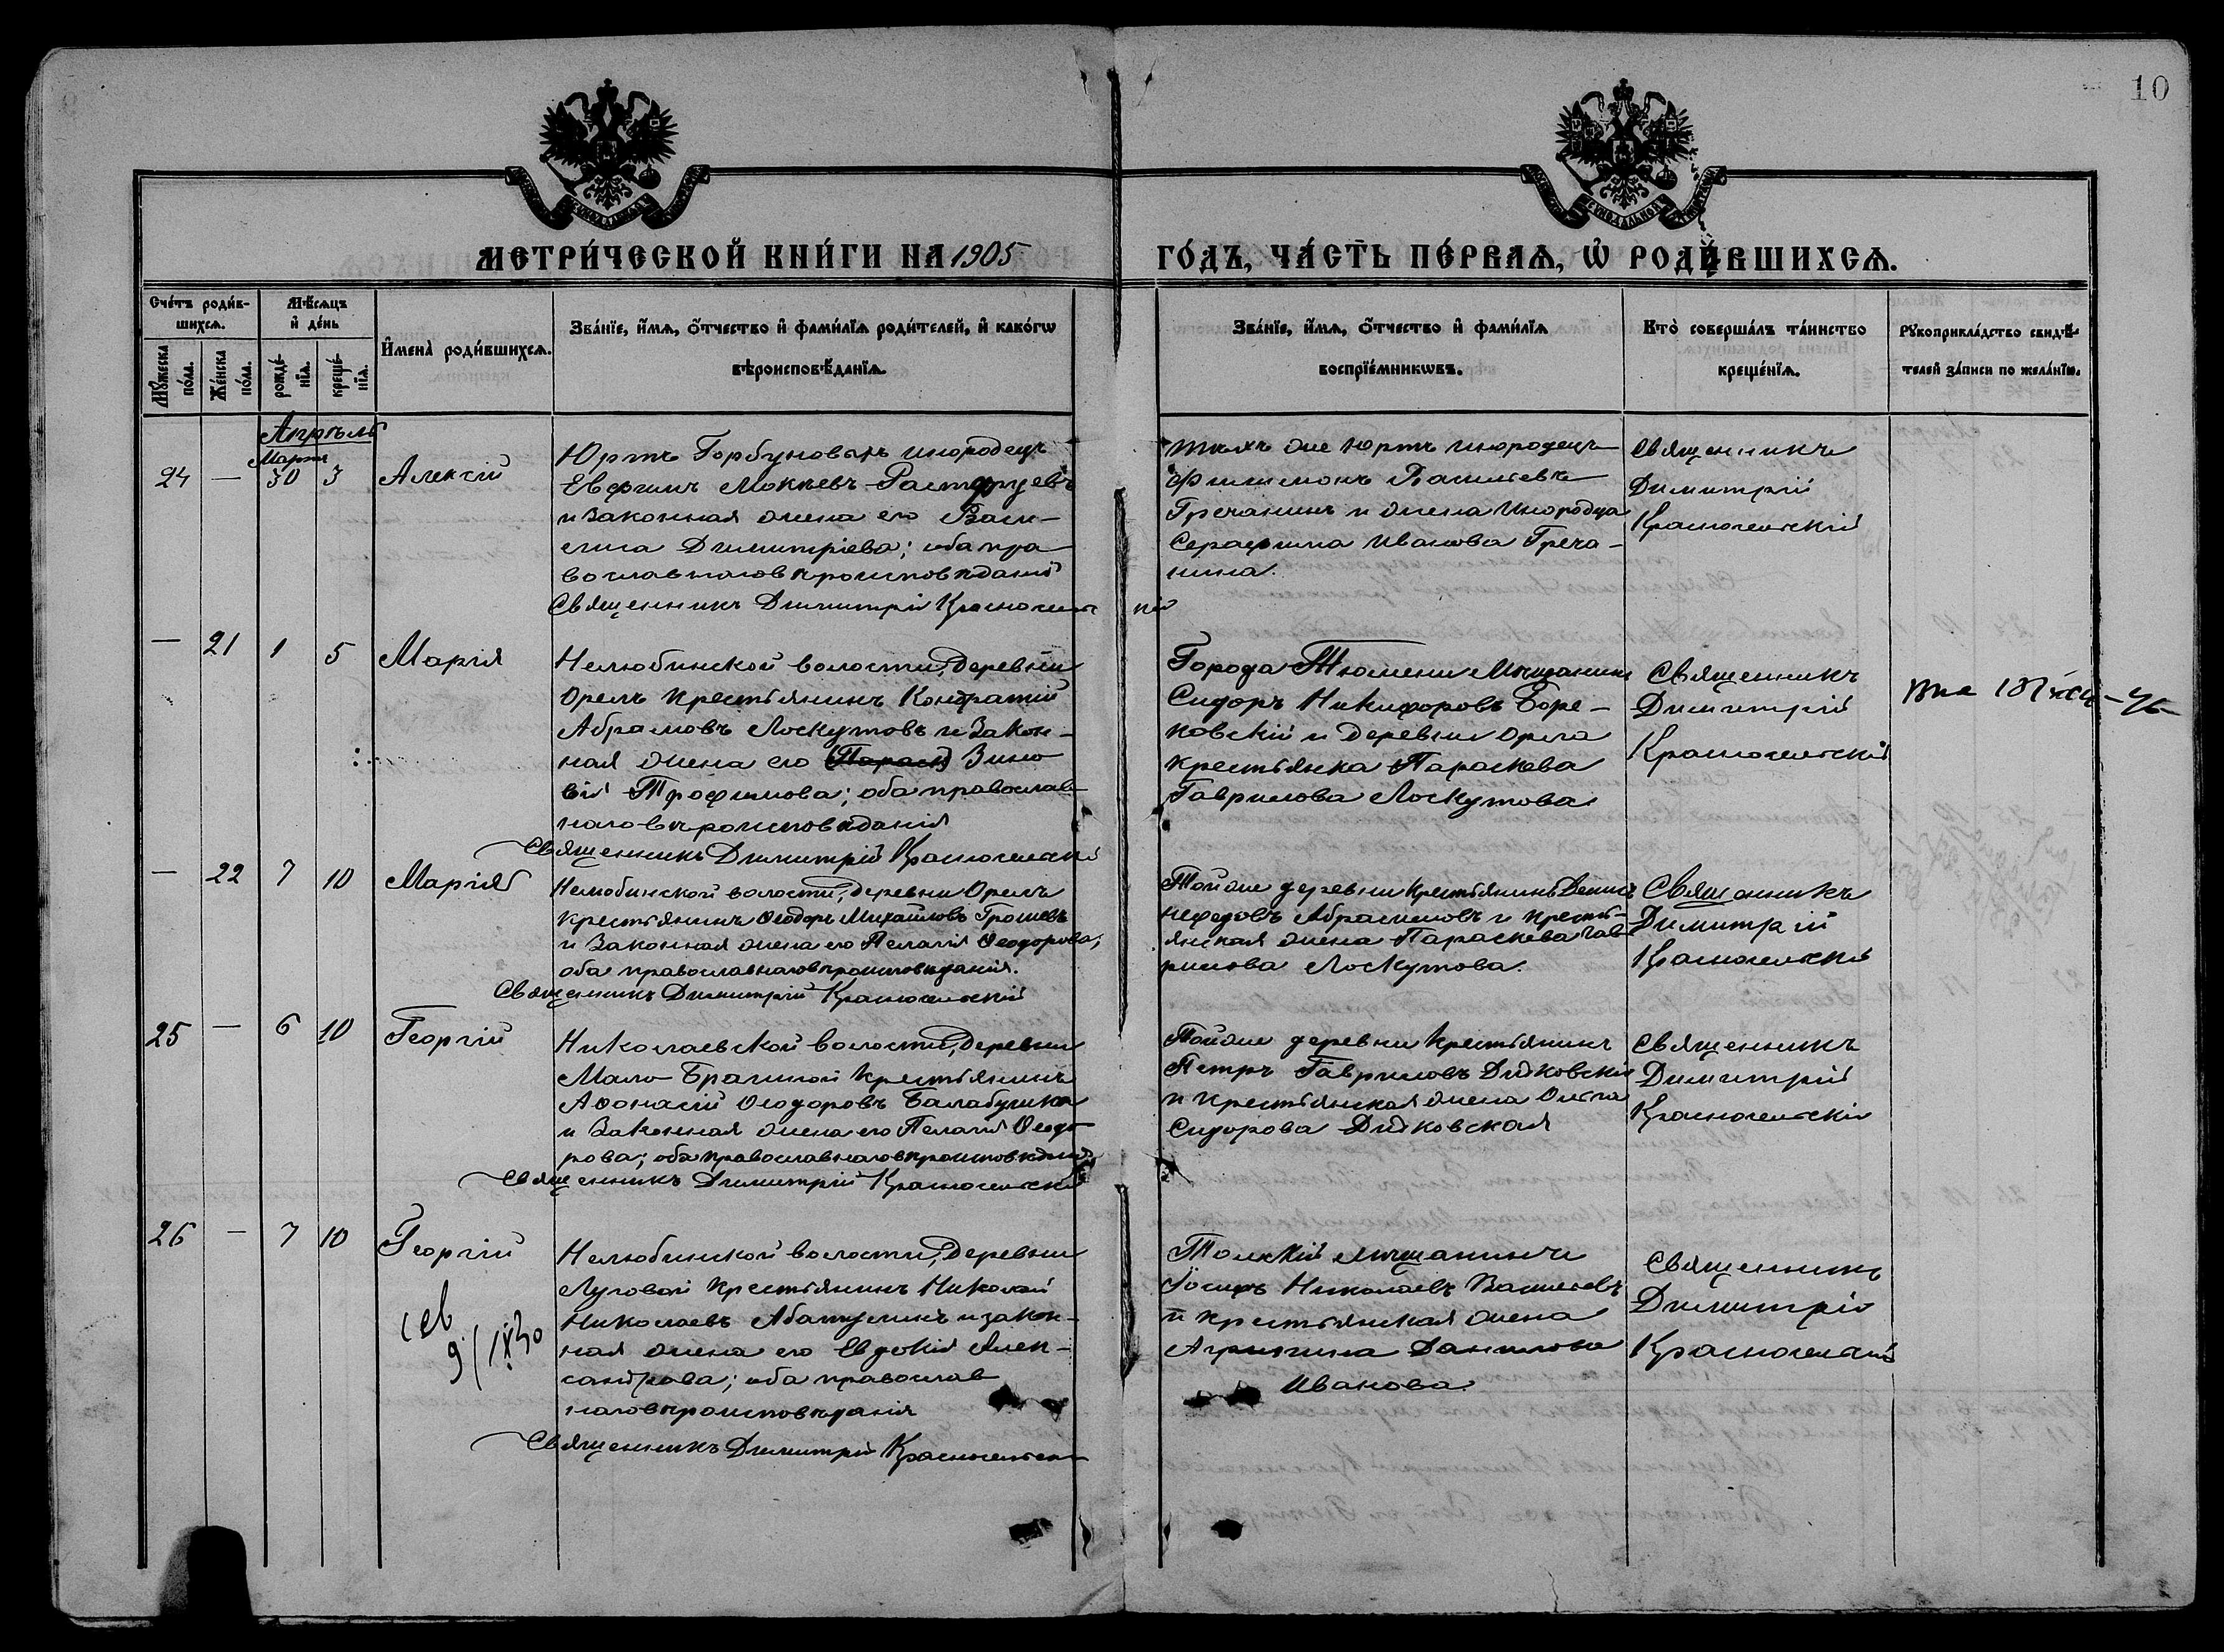 10
МЕТРИ́ЧЕСКОЙ КНИ́ГИ НА 1905
ГО́ДЪ, ЧА́СТЬ ПЕ́РВАѦ, Ѡ РОДИ́ВШИХСѦ.
Сче́тъ роди́в-
шихсѧ.
Мꙋ́жеска по́ла.
Же́нска по́ла.
Мѣ́сѧцъ
и де́нь
рожде́-
нїѧ.
креще́-
нїѧ.
Имена̀ роди́вшихсѧ.
Зва́нїе, и́мѧ, о́тчество и фами́лїѧ роди́телей, и како́гѡ
вѣроисповѣ́данїѧ.
Зва́нїе, и́мѧ, о́тчество и фами́лїѧ
воспрїе́мникѡвъ.
Кто̀ соверша́лъ та́инство
креще́нїѧ.
Рꙋкоприкла́дство свидѣ́-
телей за́писи по жела́нїю.
Апрѣль
Марта
24
—
30
3
Алексій
Юртъ Горбуновыхъ инородецъ
Мокѣевъ
и законная жена его Васи-
лиса Димитріева; оба пра-
вославнаго вѣроисповѣданія
Священникъ Димитрій Красносельскій
тѣхъ же юртъ инородецъ
Филимонъ Васильевъ
Гречанинъ и жена инородца
Серафима Иванова Греча-
нина.
Священникъ
Димитрій
Красносельскій
—
21
1
5
Марія
Нелюбинской волости, деревни
Орелъ крестьянинъ Кондратій
Абрамовъ Лоскутовъ и закон-
ная жена его (Параск) Зино
вія Трофимова; оба православ-
наго вѣроисповѣданія
Священникъ Димитрій Красносельскій
Города Тюмени мѣщанинъ
Сидоръ Никифоровъ Боре-
ковскій и деревни Орла
крестьянка Параскева
Гаврилова Лоскутова
Священникъ
Димитрій
Красносельскій
—
22
7
10
Марія
Нелюбинской волости, деревни Орелъ
крестьянинъ Ѳеодоръ Михайловъ Грошевъ
и законная жена его Пелагія Ѳеодорова;
оба православнаго вѣроисповѣданія.
Священникъ Димитрій Красносельскій
Той же деревни крестьянинъ
Абрамовъ и кресть-
янская жена Параскева Гав-
рилова Лоскутова.
Священникъ
Димитрій
Красносельскій
25
—
6
10
Георгій
Николаевской волости, деревни
Мало-Брагиной крестьянинъ
Аѳонасій Ѳеодоровъ Балабушка
и законная жена его Пелагія Ѳеодо-
рова; оба православнаго вѣроисповѣданія
Священникъ Димитрій Красносельскій
Той же деревни крестьянинъ
Петръ Гавриловъ Дидковскій
и крестьянская жена Ольга
Сидорова Дидковская
Священникъ
Димитрій
Красносельскій
26
—
7
10
Георгій
9/IX 30
Нелюбинской волости, деревни
Луговой крестьянинъ Николай
Николаевъ и закон-
ная жена его Евдокія Алек-
сандрова; оба православ-
наго вѣроисповѣданія
Священникъ Димитрій Красносельскій
Томскій мѣщанинъ
Іосифъ Николаевъ Васильевъ
и крестьянская жена
Агрипина Данилова
Иванова.
Священникъ
Димитрій
Красносельскій